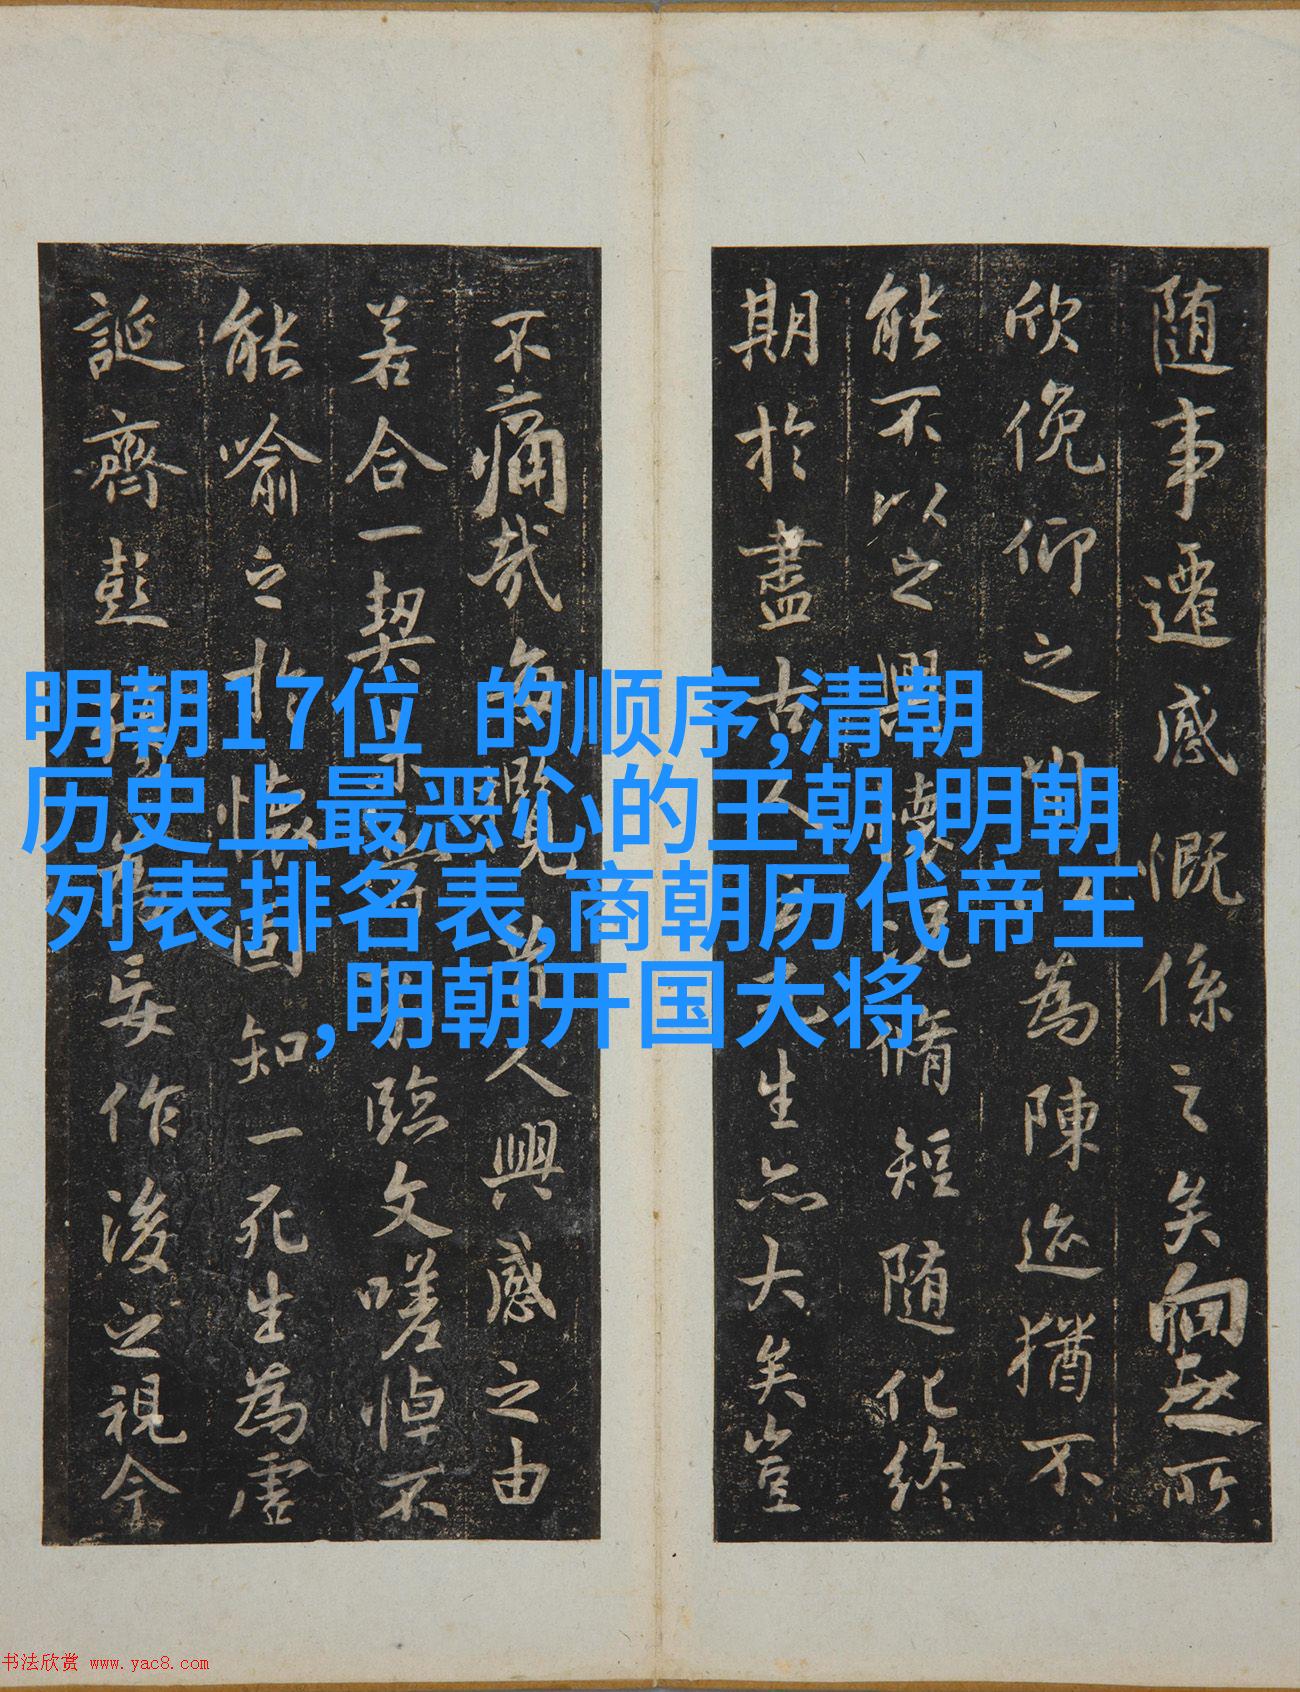 明朝17位 的顺序,清朝
历史上最恶心的王朝,明朝
列表排名表,商朝历代帝王
,明朝开国大将
随事遷感慨係之矣向之所
欣俛仰之間以為陳迹猶不
能不以之興懷況脩短随化終
期於盡古人云死生亦大矣豈
不痛哉每覽昔人興感之由
若合一契未嘗不臨文嗟悼不
能喻之於懷固知一死生為虛
誕齊彭殤為妄作後之視今
书法欣赏 www.yac8.com